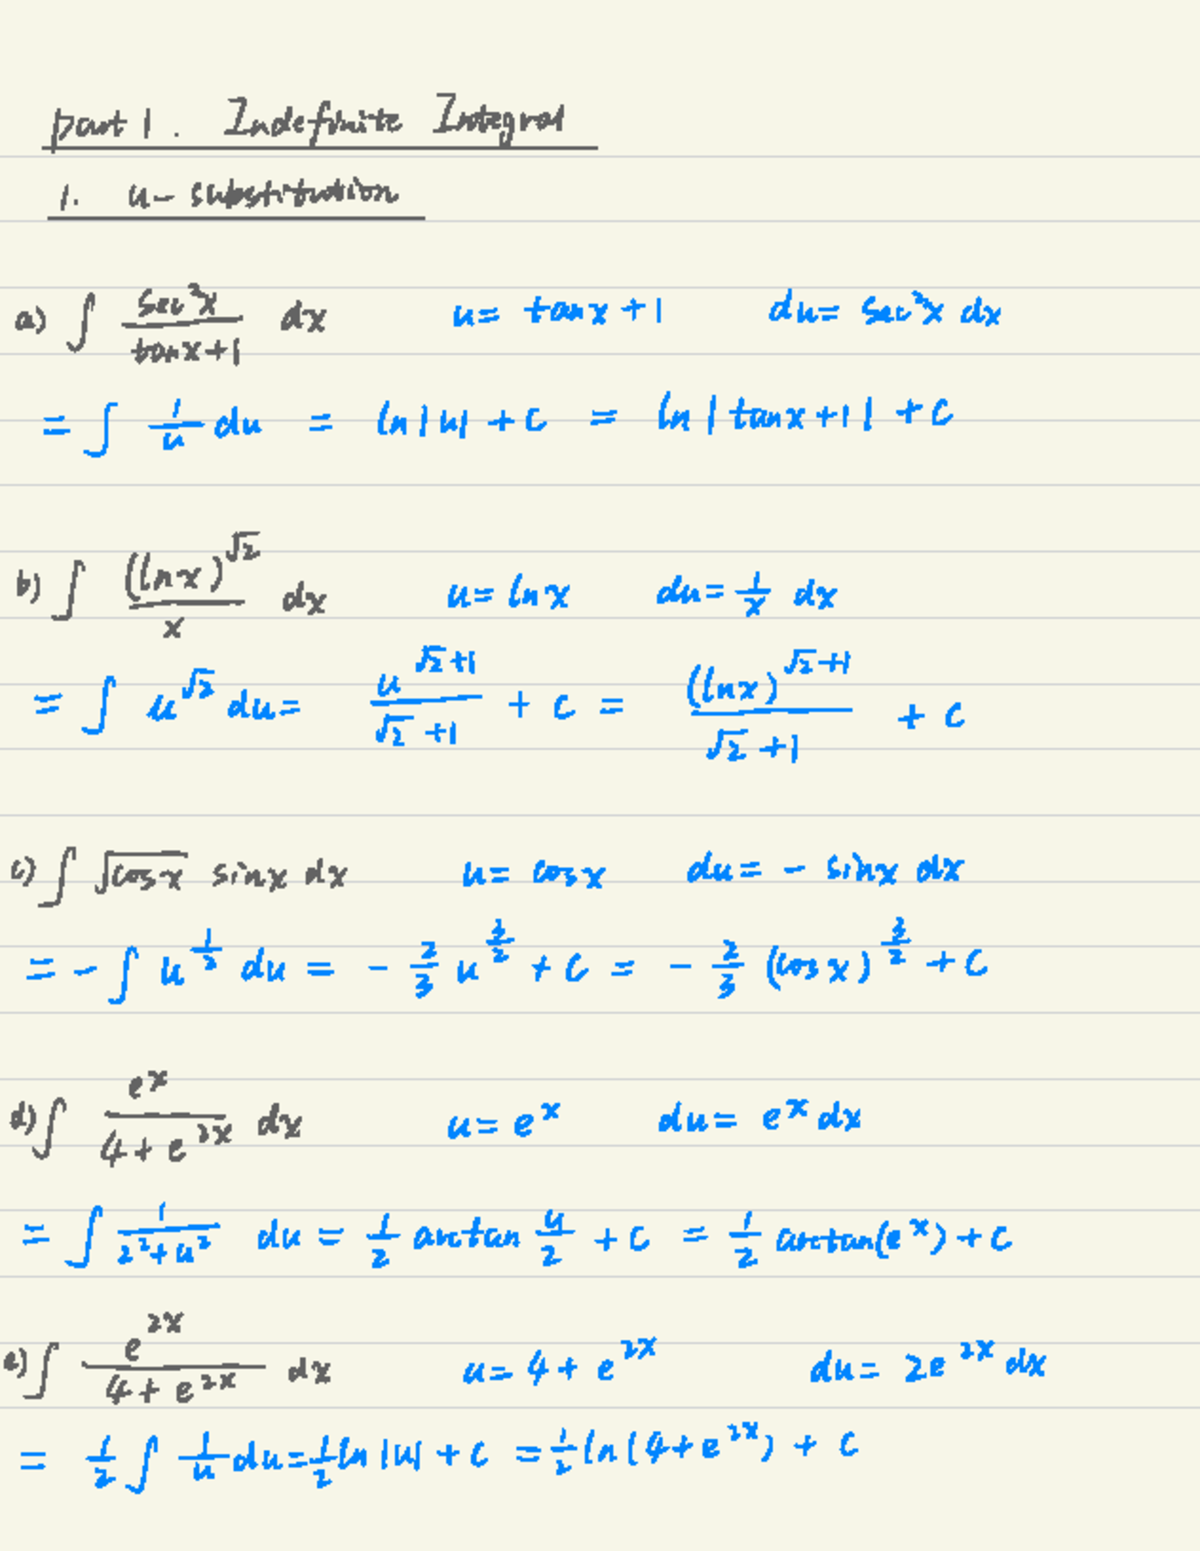 part 1. Indefinite Integral
1. u-substitution
a) ∫ sec²x / (tanx+1) dx    u = tanx+1    du = sec²x dx
= ∫ 1/u du = ln|u| + C = ln|tanx+1| + C
b) ∫ (lnx)^√2 / x dx    u = lnx    du = 1/x dx
= ∫ u^√2 du = u^(√2+1) / (√2+1) + C = (lnx)^(√2+1) / (√2+1) + C
c) ∫ √cosx sinx dx    u = cosx    du = - sinx dx
= - ∫ u^(1/2) du = - 2/3 u^(3/2) + C = - 2/3 (cosx)^(3/2) + C
d) ∫ e^x / (4+e^(2x)) dx    u = e^x    du = e^x dx
= ∫ 1/(2²+u²) du = 1/2 arctan u/2 + C = 1/2 arctan(e^x) + C
e) ∫ e^(2x) / (4+e^(2x)) dx    u = 4+e^(2x)    du = 2e^(2x) dx
= 1/2 ∫ 1/u du = 1/2 ln|u| + C = 1/2 ln(4+e^(2x)) + C